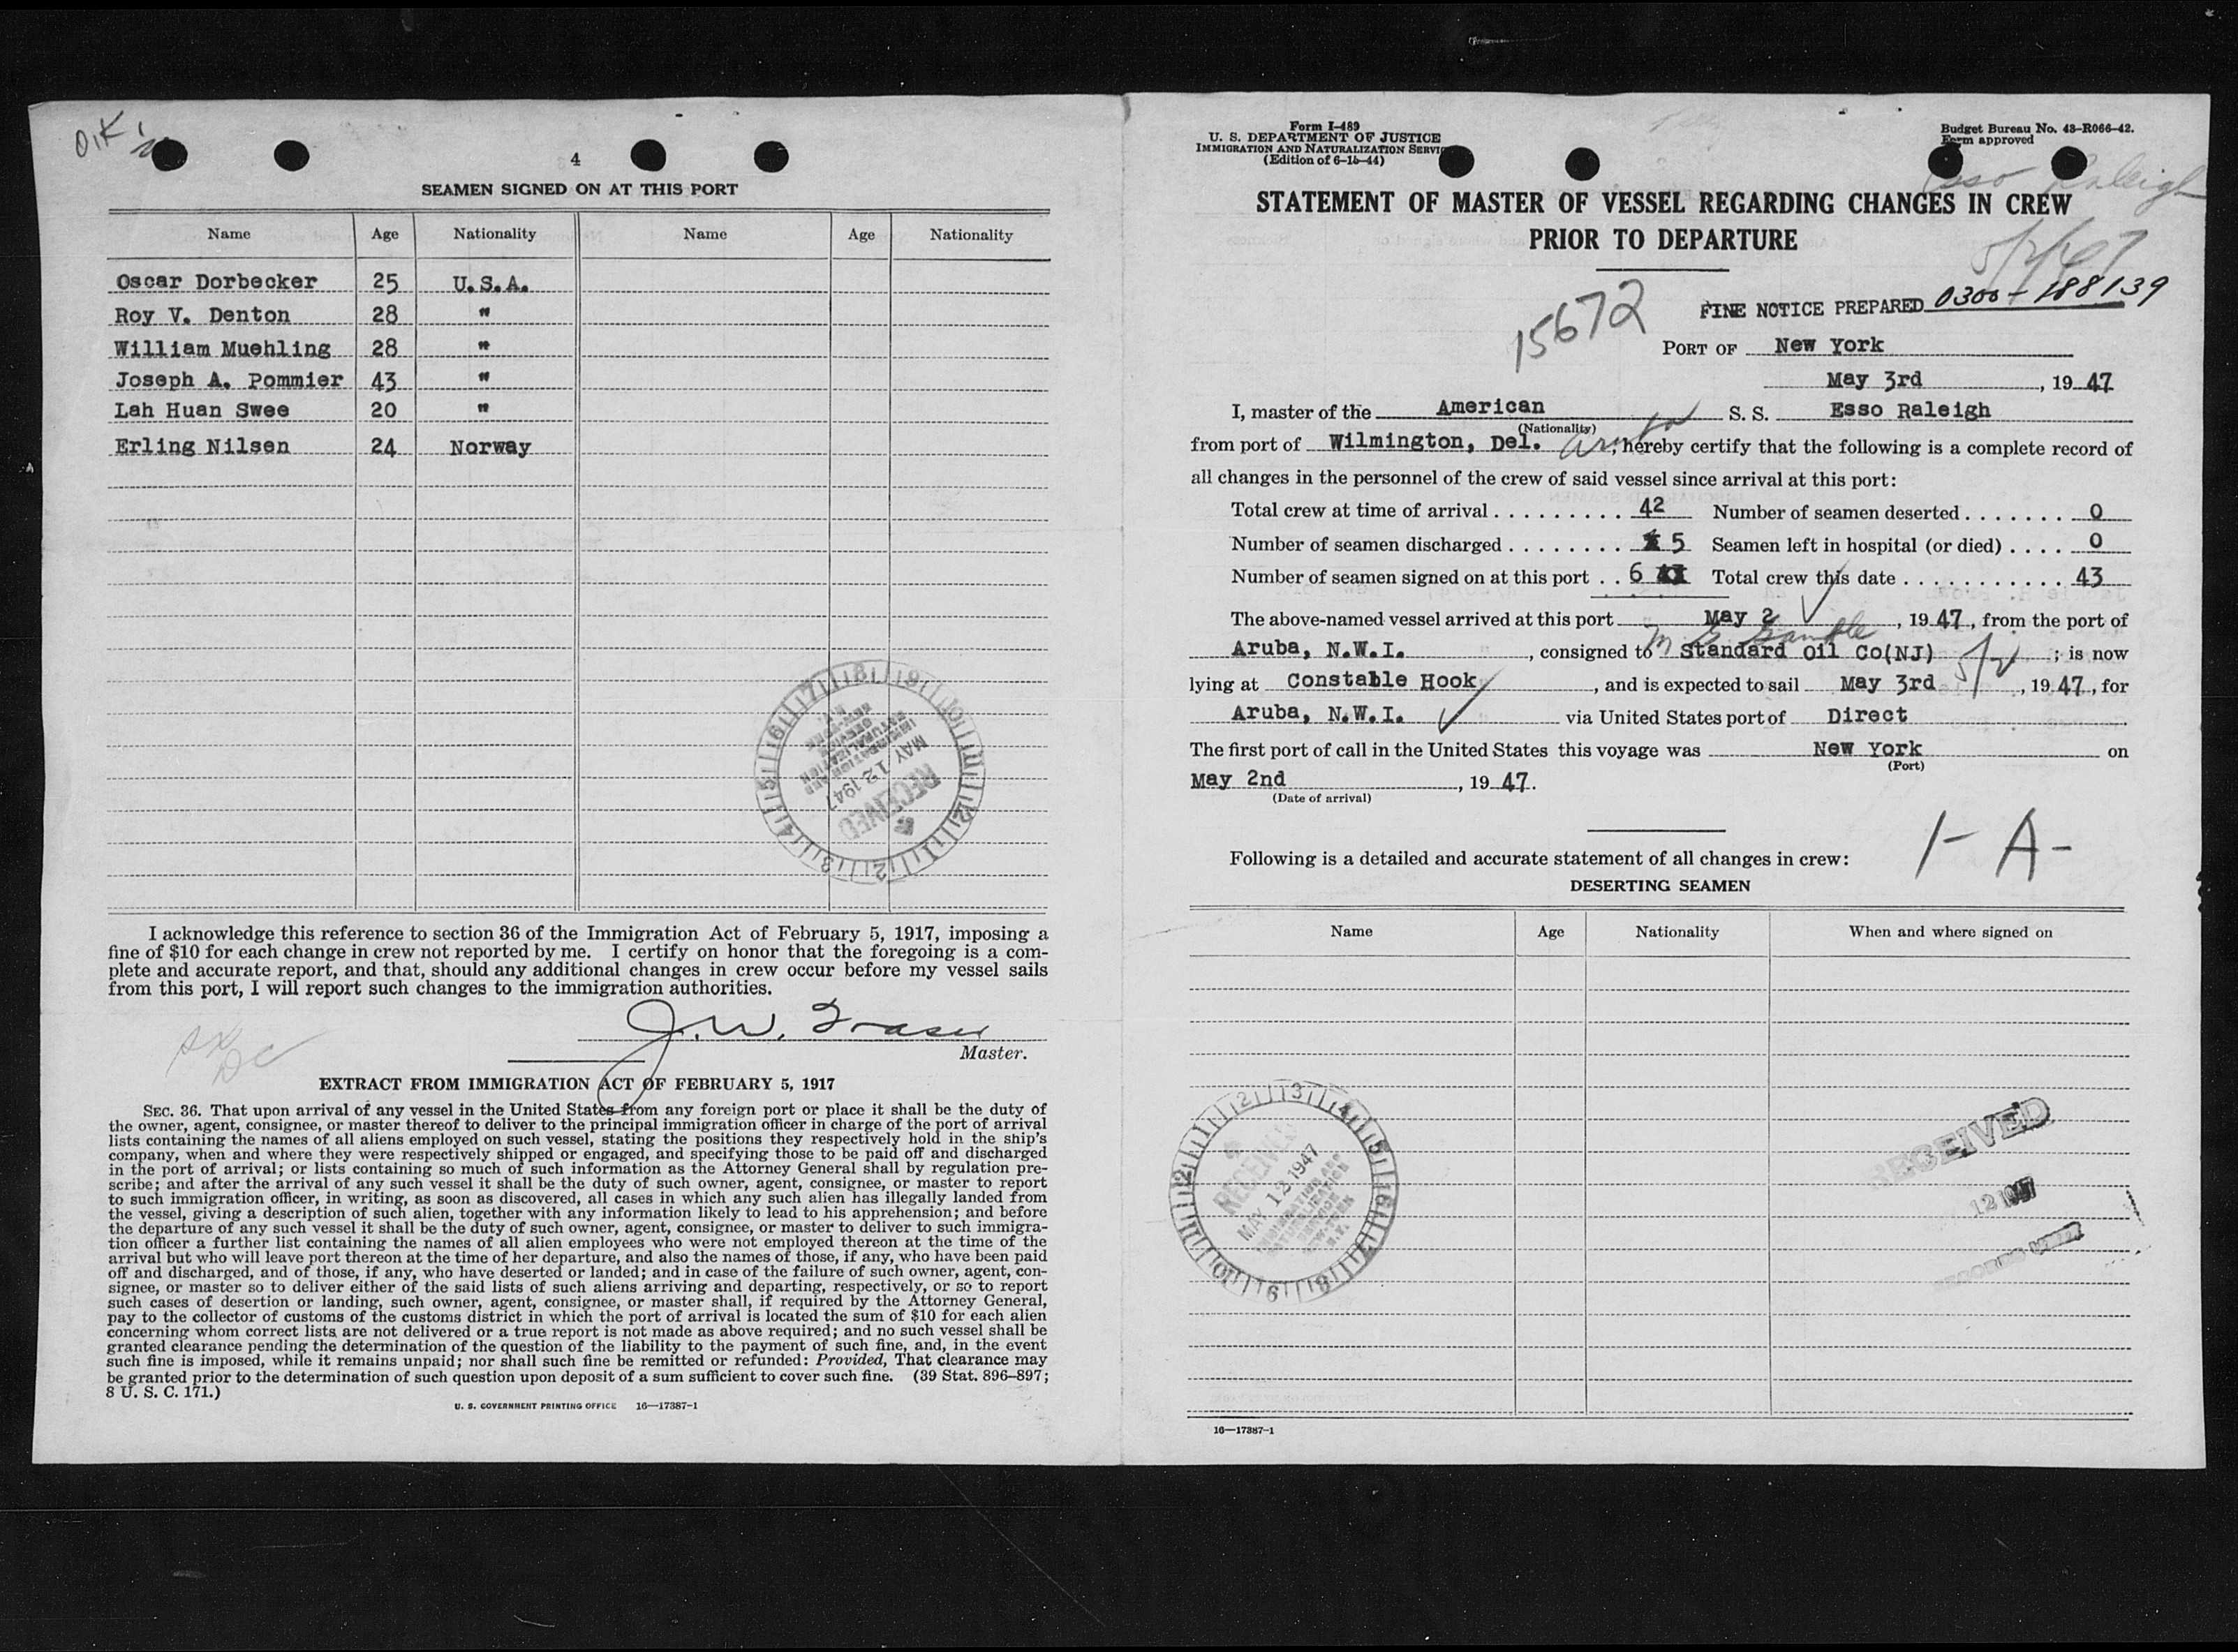 O.K.
4
SEAMEN SIGNED ON AT THIS PORT
Name Age Nationality Name Age Nationality
Oscar Dorbecker 25 U.S.A.
Roy V. Denton 28 "
William Muehling 28 "
Joseph A. Pommier 43 "
Lah Huan Swee 20 "
Erling Nilsen 24 Norway
RECEIVED
MAY 12 1947
IMMIGRATION AND
NATURALIZATION
SERVICE
NEW YORK
N.Y.
I acknowledge this reference to section 36 of the Immigration Act of February 5, 1917, imposing a
fine of $10 for each change in crew not reported by me. I certify on honor that the foregoing is a com-
plete and accurate report, and that, should any additional changes in crew occur before my vessel sails
from this port, I will report such changes to the immigration authorities.
J. W. Fraser
Master.
EXTRACT FROM IMMIGRATION ACT OF FEBRUARY 5, 1917
SEC. 36. That upon arrival of any vessel in the United States from any foreign port or place it shall be the duty of
the owner, agent, consignee, or master thereof to deliver to the principal immigration officer in charge of the port of arrival
lists containing the names of all aliens employed on such vessel, stating the positions they respectively hold in the ship's
company, when and where they were respectively shipped or engaged, and specifying those to be paid off and discharged
in the port of arrival; or lists containing so much of such information as the Attorney General shall by regulation pre-
scribe; and after the arrival of any such vessel it shall be the duty of such owner, agent, consignee, or master to report
to such immigration officer, in writing, as soon as discovered, all cases in which any such alien has illegally landed from
the vessel, giving a description of such alien, together with any information likely to lead to his apprehension; and before
the departure of any such vessel it shall be the duty of such owner, agent, consignee, or master to deliver to such immigra-
tion officer a further list containing the names of all alien employees who were not employed thereon at the time of the
arrival but who will leave port thereon at the time of her departure, and also the names of those, if any, who have been paid
off and discharged, and of those, if any, who have deserted or landed; and in case of the failure of such owner, agent, con-
signee, or master so to deliver either of the said lists of such aliens arriving and departing, respectively, or so to report
such cases of desertion or landing, such owner, agent, consignee, or master shall, if required by the Attorney General,
pay to the collector of customs of the customs district in which the port of arrival is located the sum of $10 for each alien
concerning whom correct lists are not delivered or a true report is not made as above required; and no such vessel shall be
granted clearance pending the determination of the question of the liability to the payment of such fine, and, in the event
such fine is imposed, while it remains unpaid; nor shall such fine be remitted or refunded: Provided, That clearance may
be granted prior to the determination of such question upon deposit of a sum sufficient to cover such fine. (39 Stat. 896–897;
8 U. S. C. 171.)
U. S. GOVERNMENT PRINTING OFFICE 16—17387-1
Form I-489
U. S. DEPARTMENT OF JUSTICE
IMMIGRATION AND NATURALIZATION SERVICE
(Edition of 6-15-44)
Budget Bureau No. 43-R066-42.
Form approved
Esso Raleigh
STATEMENT OF MASTER OF VESSEL REGARDING CHANGES IN CREW
PRIOR TO DEPARTURE
5/2/47
15672
FINE NOTICE PREPARED 0300-188139
PORT OF New York
May 3rd, 19 47
I, master of the American S. S. Esso Raleigh
(Nationality)
from port of Wilmington, Del. Aruba, hereby certify that the following is a complete record of
all changes in the personnel of the crew of said vessel since arrival at this port:
Total crew at time of arrival . . . . . . . . . 42 Number of seamen deserted . . . . . . . 0
Number of seamen discharged . . . . . . . . 5 Seamen left in hospital (or died) . . . . 0
Number of seamen signed on at this port . . 6 Total crew this date . . . . . . . . . . . 43
The above-named vessel arrived at this port May 2, 19 47, from the port of
Aruba, N.W.I., consigned to Standard Oil Co(NJ) 5/2; is now
lying at Constable Hook, and is expected to sail May 3rd, 19 47, for
Aruba, N.W.I. via United States port of Direct
The first port of call in the United States this voyage was New York on
(Port)
May 2nd, 19 47.
(Date of arrival)
1-A-
Following is a detailed and accurate statement of all changes in crew:
DESERTING SEAMEN
Name Age Nationality When and where signed on
RECEIVED
MAY 12 1947
IMMIGRATION AND
NATURALIZATION
SERVICE
NEW YORK
N.Y.
RECEIVED
12 1947
16—17387-1